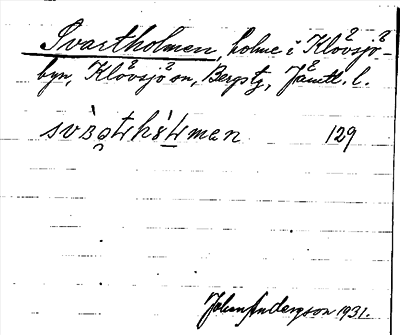 Svartholmen, holme i Klövsjö-
byn, Klövsjö sn, Bergs tg, Jämtl. l.
129
Johan Andergson 1931.